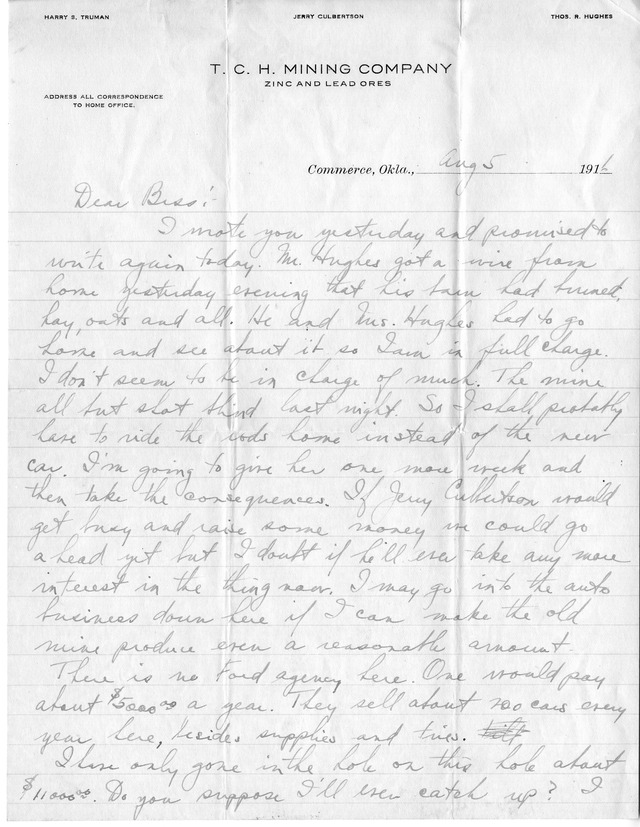 HARRY S. TRUMAN JERRY CULBERTSON THOS. R. HUGHES
T. C. H. MINING COMPANY
ZINC AND LEAD ORES
ADDRESS ALL CORRESPONDENCE
TO HOME OFFICE.
Commerce, Okla., Aug 5 1916
Dear Bess:-
I wrote you yesterday and promised to
write again today. Mr. Hughes got a wire from
home yesterday evening that his barn had burned,
hay, oats and all. He and Mrs. Hughes had to go
home and see about it so I am in full charge.
I don't seem to be in charge of much. The mine
all but shot last night. So I shall probably
have to ride the rods home instead of the new
car. I'm going to give her one more week and
then take the consequences. If Jerry Culbertson would
get busy and raise some money we could go
ahead yet but I doubt if he'll ever take any more
interest in the thing now. I may go into the auto
business down here if I can make the old
mine produce even a reasonable amount.
There is no Ford agency here. One would pay
about $5000.00 a year. They sell about 200 cars every
year here, besides supplies and tires.
I have only gone in the hole on this hole about
$11000.00. Do you suppose I'll ever catch up? I